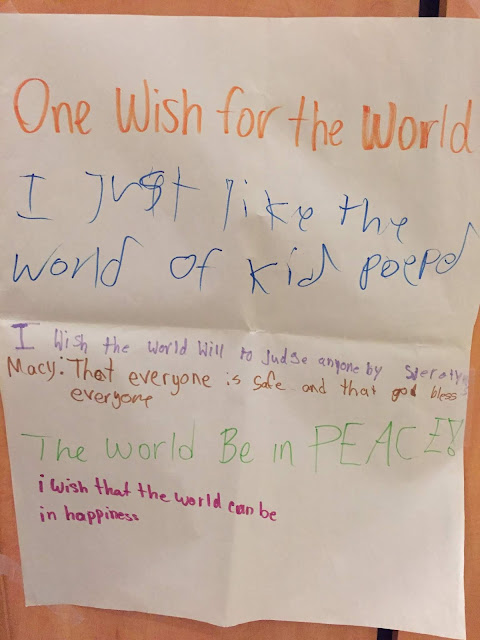 One Wish for the World
I just like the
world of kid poepd
I wish the world will to judse anyone by
Macy: That everyone is safe and that god bless
everyone
The world Be in PEACE!
i wish that the world can be
in happiness